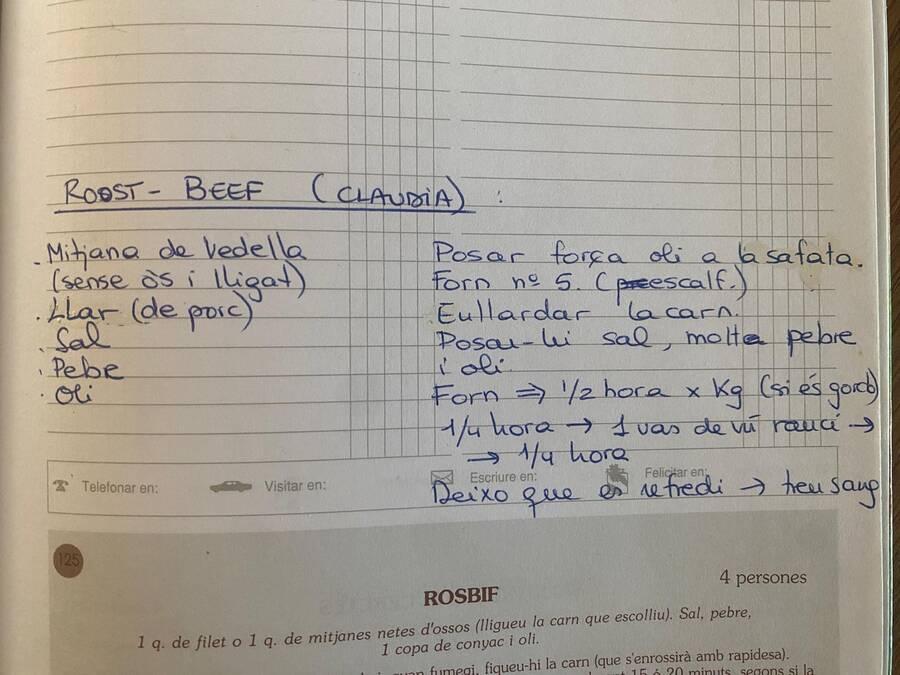 ROOST - BEEF (CLAUDIA) :
. Mitjana de Vedella
(sense òs i lligat)
. Llar (de porc)
. Sal
. Pebe
. Oli
Posar força oli a la safata.
Forn nº 5. (preescalf.)
Eullardar la carn.
Posar-li sal, molta pebre
i oli.
Forn ⇒ 1/2 hora x Kg (si és gord)
1/4 hora → 1 vas de vi ranci →
→ 1/4 hora
Deixo que es refredi → treu sang
Telefonar en:
Visitar en:
Escriure en:
Felicitar en:
125
4 persones
ROSBIF
1 q. de filet o 1 q. de mitjanes netes d'ossos (lligueu la carn que escolliu). Sal, pebre,
1 copa de conyac i oli.
fumegi, fiqueu-hi la carn (que s'enrossirà amb rapidesa).
15 ó 20 minuts, segons si la